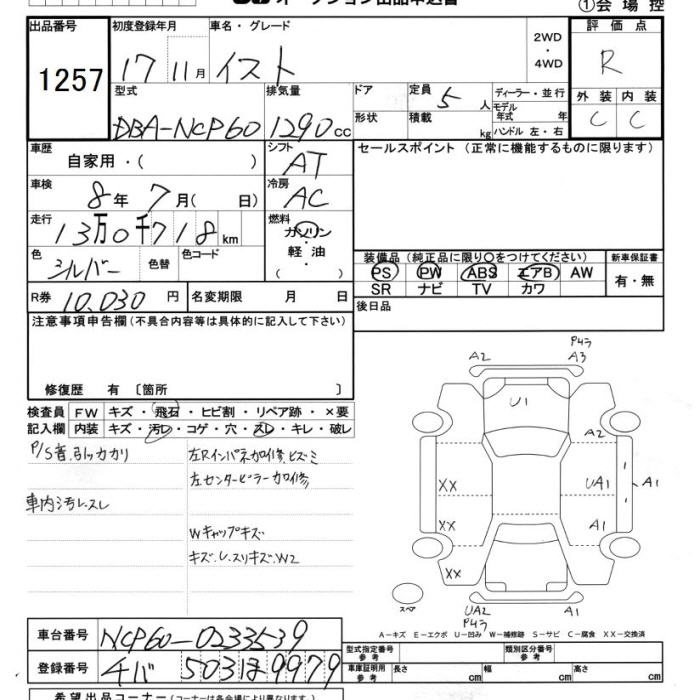 オークション出品申込書
①会場控
出品番号 1257
初度登録年月 17 11月
車名・グレード イスト
2WD・4WD
評価点 R
型式 DBA-NCP60
排気量 1290cc
ドア
形状
定員 5人
積載 kg
ディーラー・並行
モデル年式 年
ハンドル 左・右
外装 C
内装 C
車歴 自家用・( )
シフト AT
セールスポイント (正常に機能するものに限ります)
車検 8年7月( 日)
冷房 AC
走行 13万0千718km
燃料 ガソリン・軽油・( )
色 シルバー
色替
色コード
装備品 (純正品に限り○をつけてください)
PS PW ABS エアB AW
SR ナビ TV カワ
新車保証書 有・無
R券 10,030円
名変期限 月 日
後日品
注意事項申告欄 (不具合内容等は具体的に記入して下さい)
修復歴 有 〔箇所 〕
検査員記入欄
FW キズ・飛石・ヒビ割・リペア跡・×要
内装 キズ・汚レ・コゲ・穴・スレ・キレ・破レ
P/S音.引ッカカリ
車内汚レ.スレ
左Rインパネ加修ヒズミ
左センターピラー加修
Wキャップキズ
キズ.U.スリキズ.W2
A2
P43
A3
U1
A2
XX
UA1
A1
XX
A1
XX
スペア
UA2
P43
A1
A-キズ E-エクボ U-凹み W-補修跡 S-サビ C-腐食 XX-交換済
車台番号 NCP60-0233539
登録番号 チバ 503ほ9979
型式指定番号 参考
類別区分番号 参考
車庫証明用 参考 長さ cm 幅 cm 高さ cm
希望出品コーナー (コーナーは各会場により異なります)